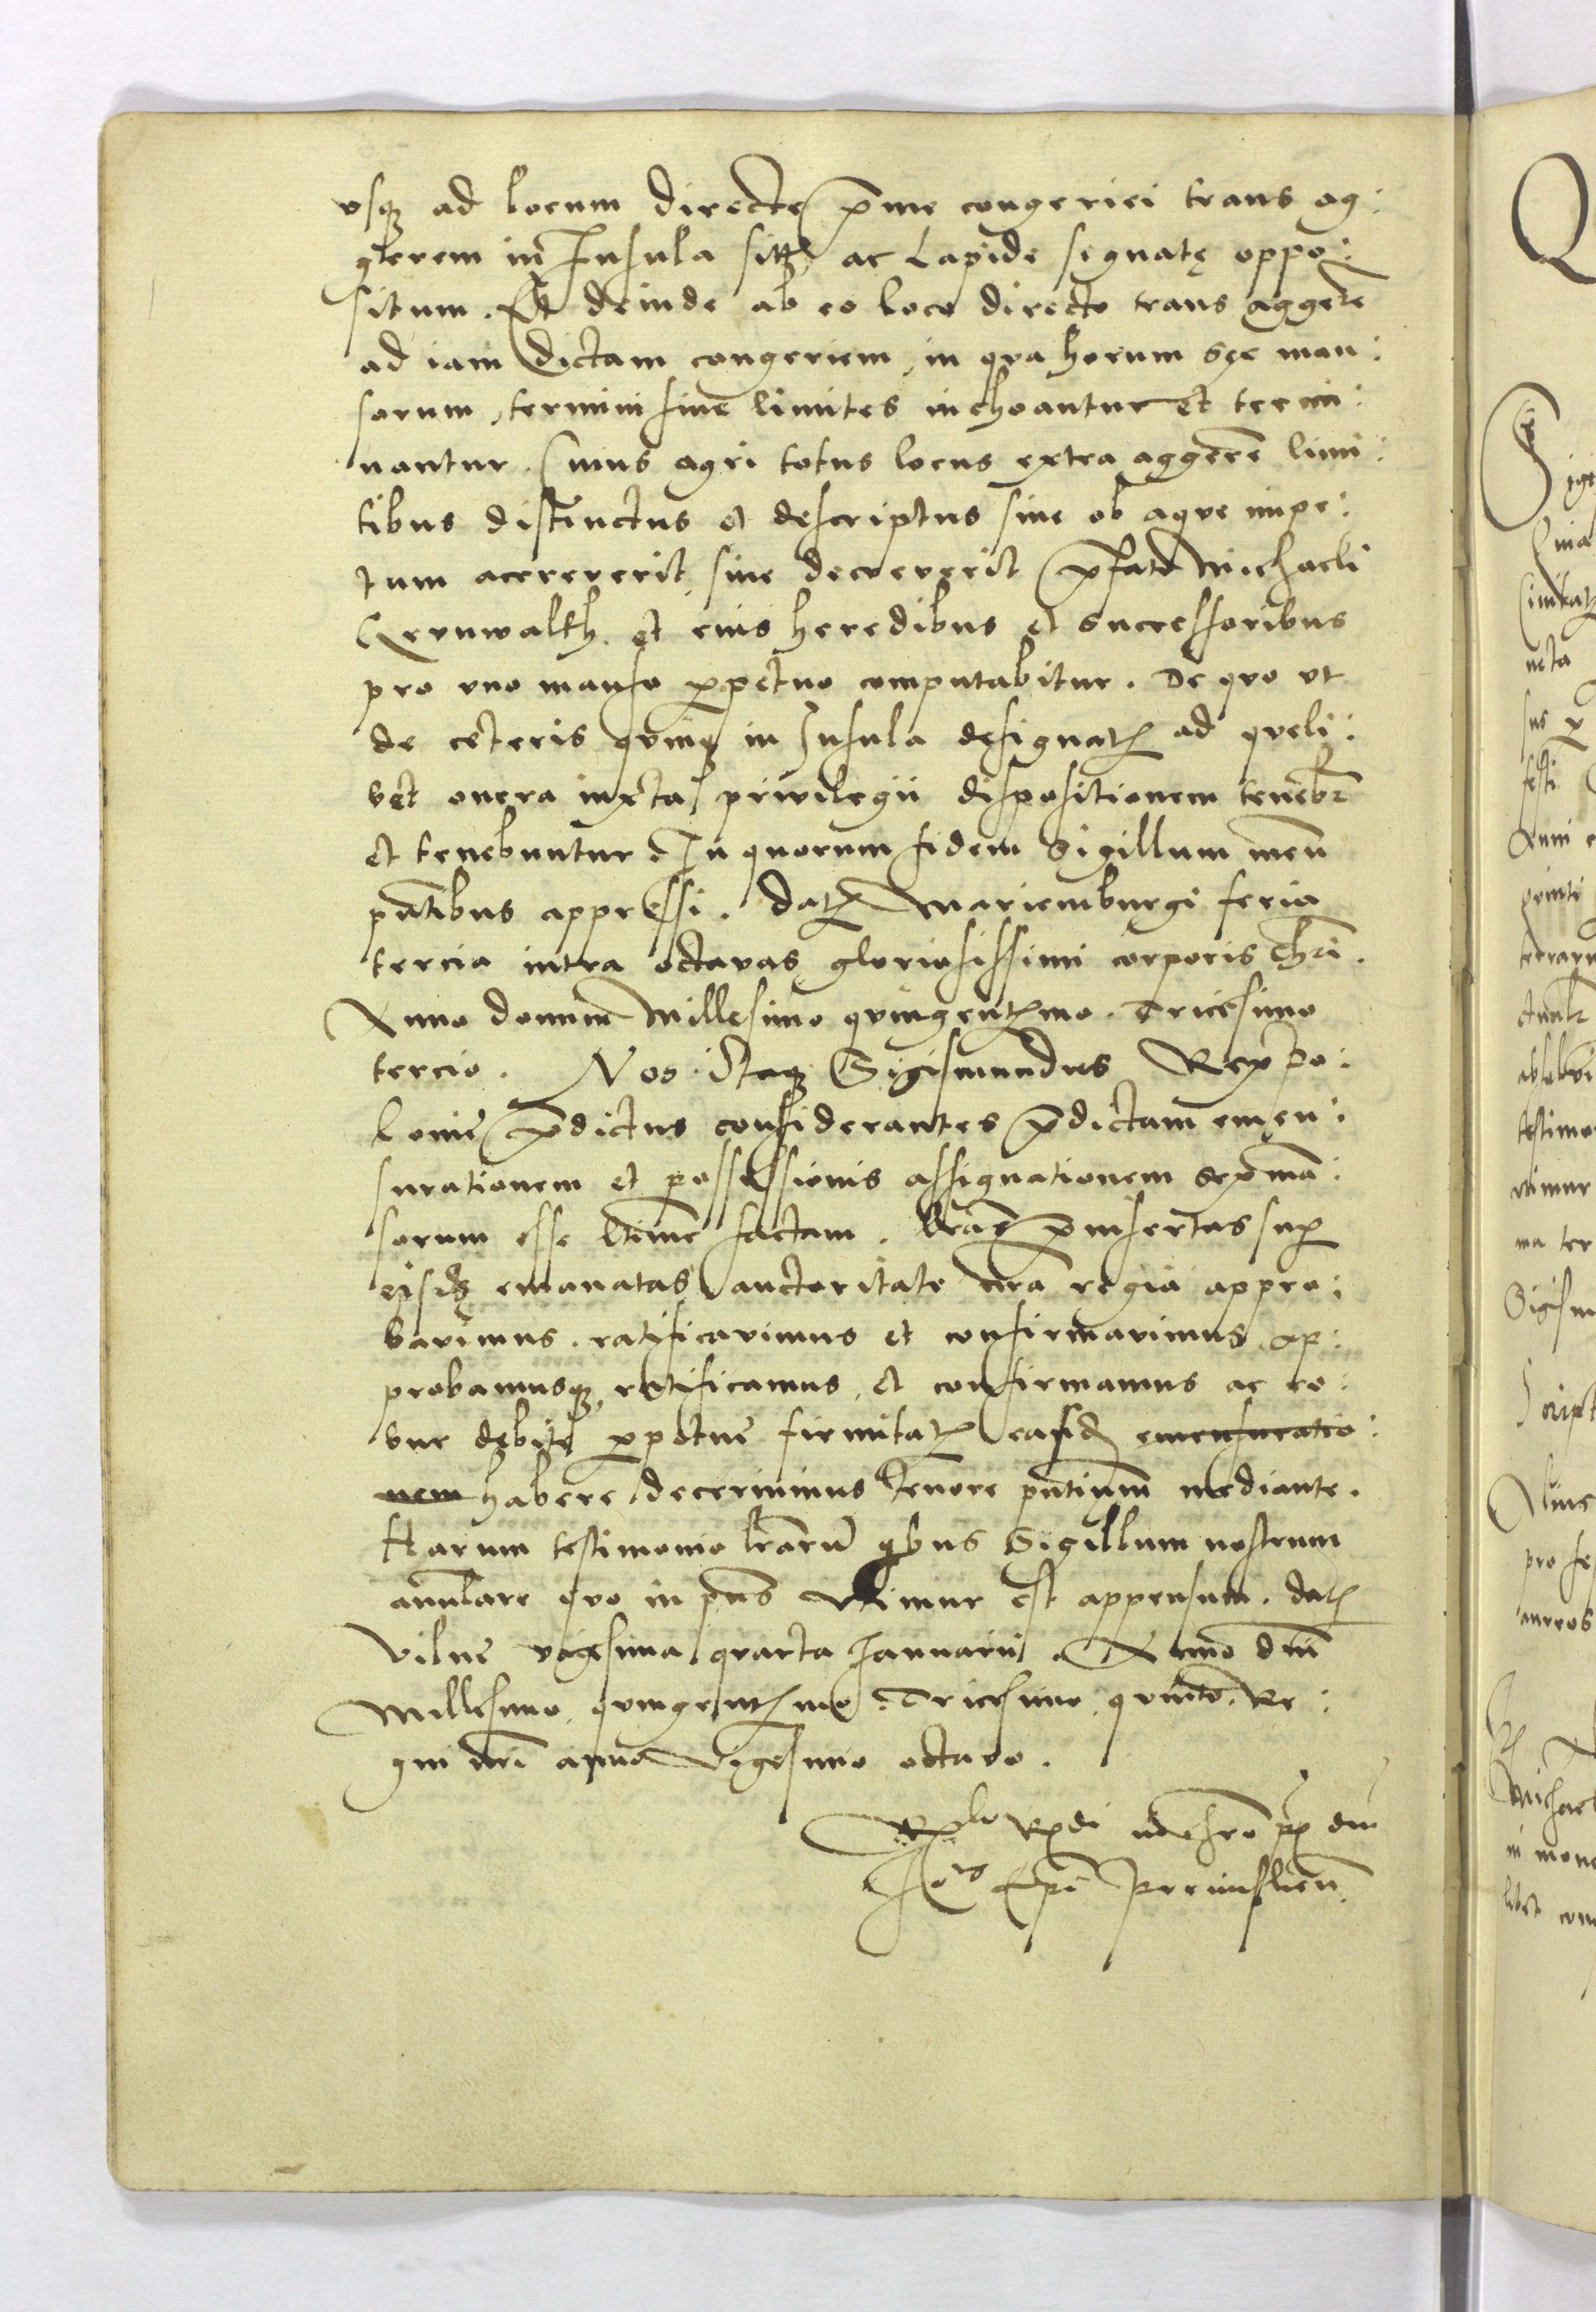 vsq3 ad locum directe p̄me congeriei trans ag:
gerem in Insula sitę ac Lapide signatę oppo:
situm. Et deinde ab eo loco directo trans aggerē
ad iam dictam congeriem, in qua horum sex man:
sorum, termini siue limites inchoantur et termi:
nantur. Cuius agri totus locus extra aggerē limi:
tibus distinctus et descriptus siue ob aque impe:
tum accreuerit, siue decreuerit p̄fato Michaeli
Ernnwalth. et eius heredibus et successoribus
pro vno manso ꝑpetuo computabitur. De quo vt
de ceteris quinq3 in Insula designatꝭ ad queli:
bet onera iuxta priuilegii dispositionem tenebr̄
et tenebuntur. In quorum fidem Sigillum meū
pn̄tibus appressi. Datꝭ Mariemburgi feria
tercia intra octauas gloriosissimi corporis Chrī.
Anno domini Millesimo quingentꝭmo. Tricesimo
tercio. Nos Itaq3 Sigismundus Rex Po:
lonie p̄dictus considerantes p̄dictam emen:
surationem et possessionis assignationem sex mā:
sorum esse ltīme factam. Lrāsq3 p̄insertas suꝑ
eisd3 emanatas auctoritate nr̄a regia appro:
bauimus. ratificauimus et confirmauimus, ap:
probamusq3, ratificamus, et confirmamus ac ro:
bur debite ꝑpetue firmitatꝭ easd3 emensuratio:
nem habere decernimus Tenore pn̄tium mediante.
Harum testimonio lrārū qbus Sigillum nostrum
annulare quo in pn̄s vtimur est appensum. Datꝭ
Vilne vigesima quarta Januarii. Anno dn̄i
Millesimo, quingentꝭmo. Tricesimo, quinto. Re:
gni nr̄i anno vigesimo octauo.
Rꝭlo Rꝭdi in Chrō pr̄ꝭ dn̄i
Jo{is} Epī Premislien̄.